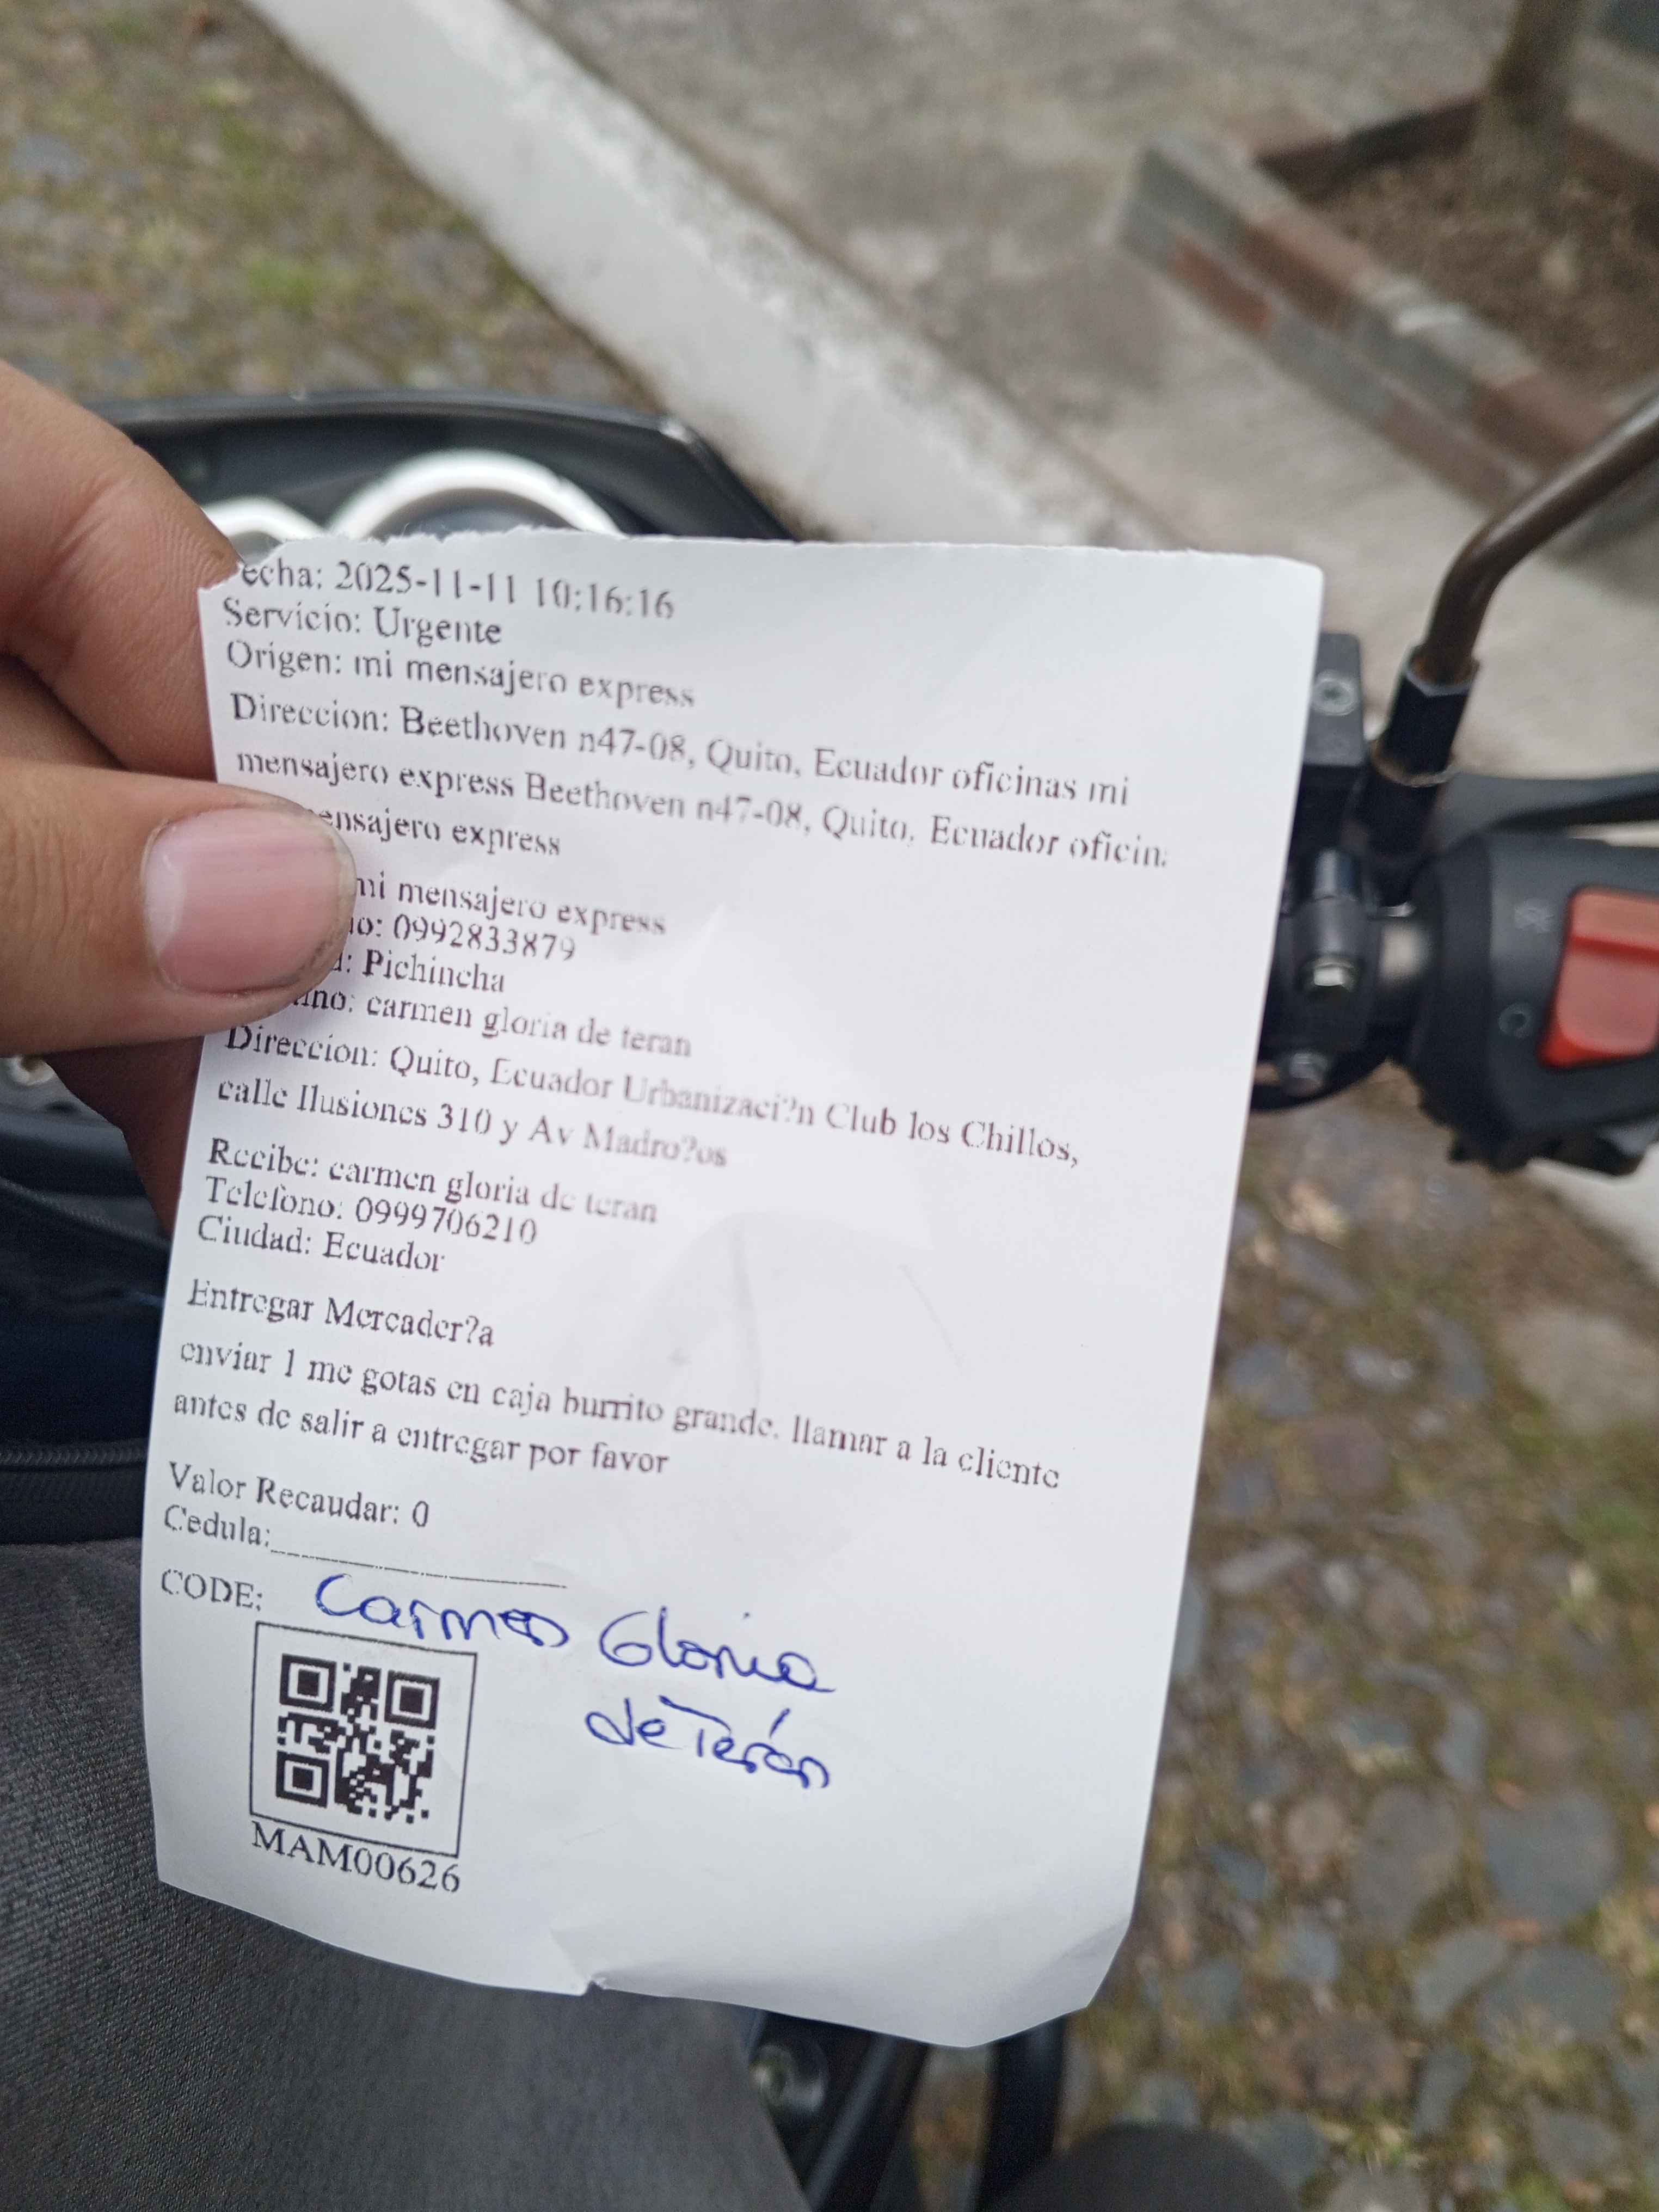 echa: 2025-11-11 10:16:16
Servicio: Urgente
Origen: mi mensajero express
Direccion: Beethoven n47-08, Quito, Ecuador oficinas mi
mensajero express Beethoven n47-08, Quito, Ecuador oficin
ensajero express
mi mensajero express
no: 0992833879
d: Pichincha
ino: carmen gloria de teran
Direccion: Quito, Ecuador Urbanizaci?n Club los Chillos,
calle Ilusiones 310 y Av Madro?os
Recibe: carmen gloria de teran
Telefono: 0999706210
Ciudad: Ecuador
Entregar Mercader?a
enviar 1 me gotas en caja burrito grande. llamar a la cliente
antes de salir a entregar por favor
Valor Recaudar: 0
Cedula:
CODE:
Carmen Gloria
de Terán
MAM00626